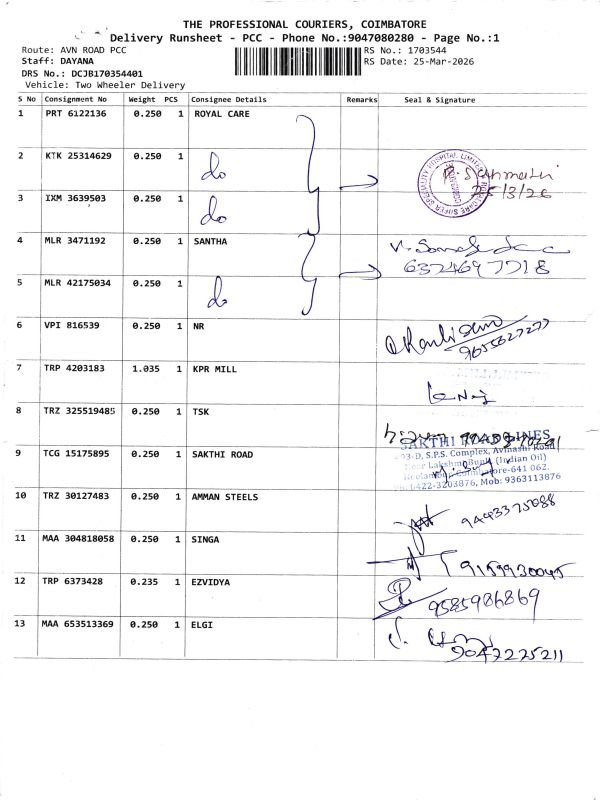 THE PROFESSIONAL COURIERS, COIMBATORE
Delivery Runsheet - PCC - Phone No.:9047080280 - Page No.:1
Route: AVN ROAD PCC
RS No.: 1703544
Staff: DAYANA
RS Date: 25-Mar-2026
DRS No.: DCJB170354401
Vehicle: Two Wheeler Delivery
S No Consignment No Weight PCS Consignee Details Remarks Seal & Signature
1 PRT 6122136 0.250 1 ROYAL CARE
2 KTK 25314629 0.250 1 do
25/3/26
3 IXM 3639503 0.250 1 do
4 MLR 3471192 0.250 1 SANTHA
6374697718
5 MLR 42175034 0.250 1 do
6 VPI 816539 0.250 1 NR
9655627277
7 TRP 4203183 1.035 1 KPR MILL
8 TRZ 325519485 0.250 1 TSK
9 TCG 15175895 0.250 1 SAKTHI ROAD
SAKTHI ROADLINES
S.P.S. Complex, Avinashi Road
Near Lakshmi Bunk (Indian Oil)
Coimbatore-641 062.
Ph: 0422-3203876, Mob: 9363113876
10 TRZ 30127483 0.250 1 AMMAN STEELS
9443375088
11 MAA 304818058 0.250 1 SINGA
9159930045
12 TRP 6373428 0.235 1 EZVIDYA
9585986869
13 MAA 653513369 0.250 1 ELGI
9047225211